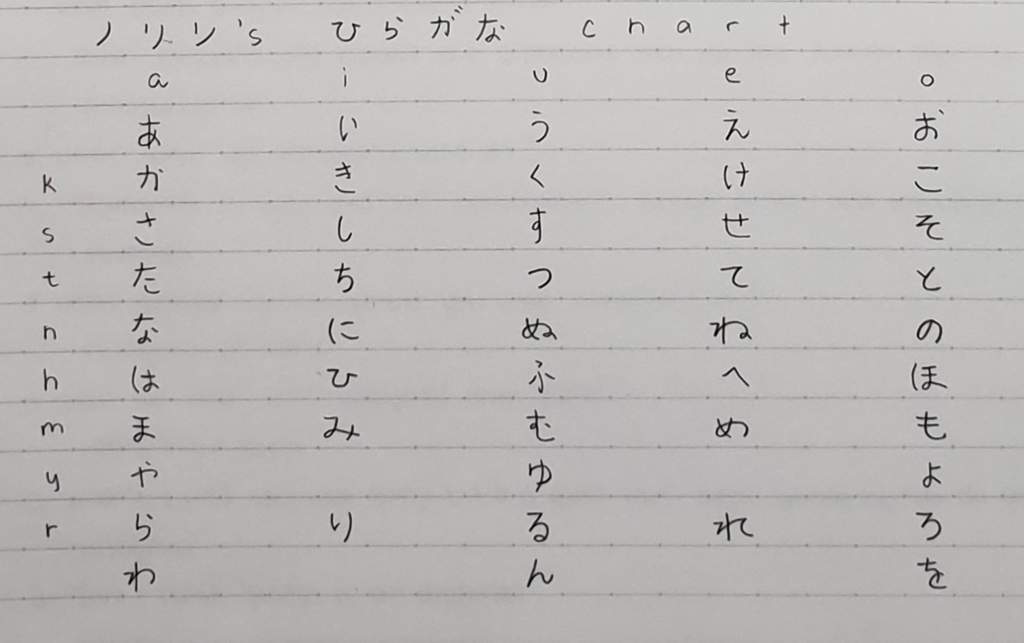 ノリソ's ひらがな chart
a i u e o
あ い う え お
k か き く け こ
s さ し す せ そ
t た ち つ て と
n な に ぬ ね の
h は ひ ふ へ ほ
m ま み む め も
y や ゆ よ
r ら り る れ ろ
わ ん を